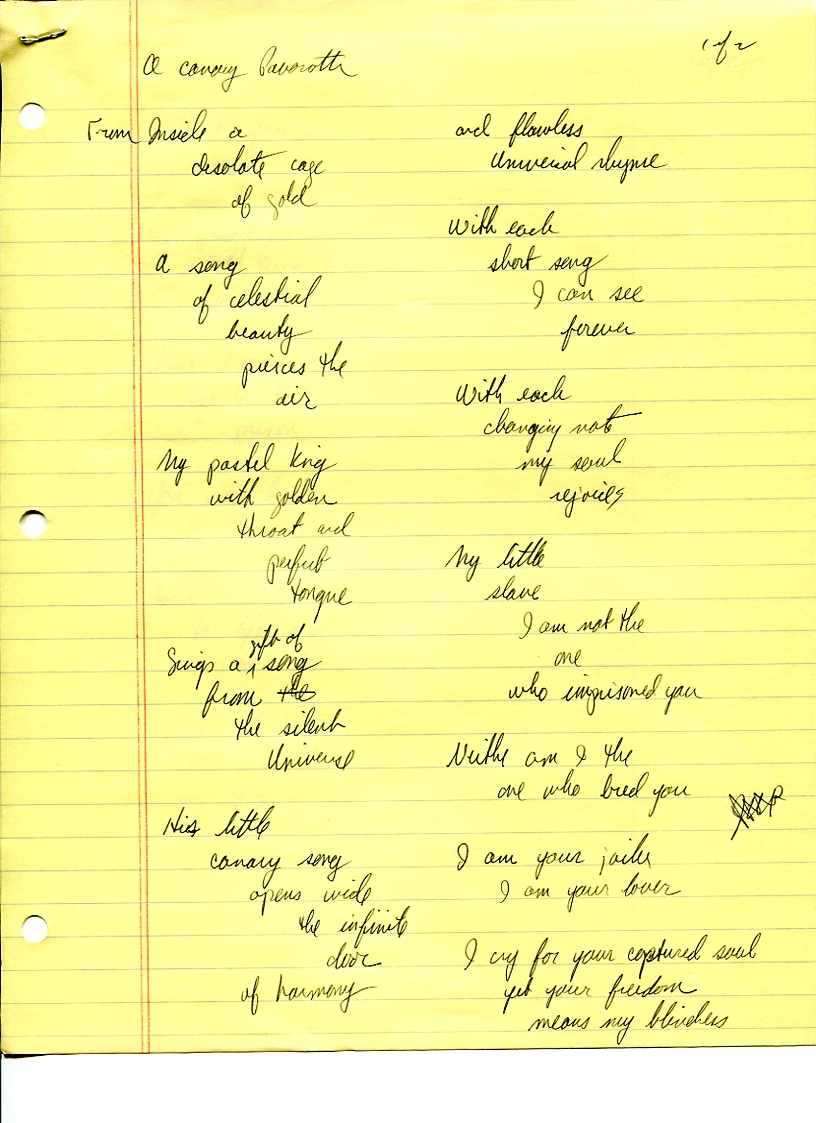 A canary Pavarotti
1 of 2
From Inside a
desolate cage
of gold
A song
of celestial
beauty
pierces the
air
My pastel king
with golden
throat and
perfect
tongue
Sings a gift of song
from the
the silent
Universe
His little
canary song
opens wide
the infinite
door
of harmony
and flawless
Universal rhyme
With each
short song
I can see
forever
With each
changing note
my soul
rejoices
My little
slave
I am not the
one
who imprisoned you
Neither am I the
one who bred you
I am your jailer
I am your lover
I cry for your captured soul
yet your freedom
means my blindness